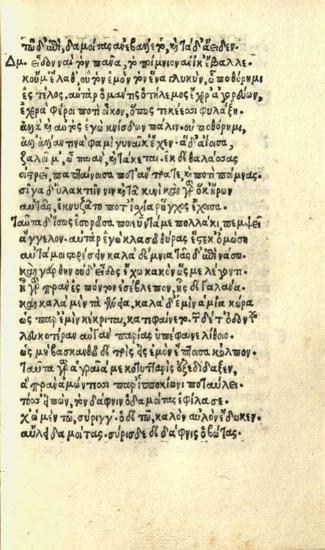 τῷ δ' ἐπὶ, δαμοίτας ἀνεβάλλετο, καὶ τάδ' ἄειδεν.
Δμ. Εἶδον ναὶ τὸν πᾶνα, τὸ ποίμνιον ἁνίκ' ἔβαλλε.
κοὔ μ' ἔλαθ', οὐ τὸν ἐμὸν τὸν ἕνα γλυκὺν, ᾧ ποθορῆμι
ἐς τέλος, αὐτὰρ ὁ μάντις ὁ τήλεμος ἔχθρ' ἀγορεύων,
ἐχθρὰ φέροι ποτὶ οἶκον, ὅπως τεκέεσσι φυλάξῃ.
ἀλλὰ καὶ αὐτὸς ἐγὼ κνίσδων πάλιν οὐ ποθόρημι,
ἀλλ' ἄλλαν τινὰ φαμὶ γυναῖκ' ἔχεν. ἁ δ' ἀΐοισα,
ζαλοῖ μ', ὦ παιὰν, καὶ τάκεται. ἐκ δὲ θαλάσσας
οἰστρεῖ, παπταίνοισα ποτ' ἄντρα τε, καὶ ποτὶ ποίμνας.
σίγα δ' ὑλακτεῖν νιν καὶ τᾷ κυνὶ. καὶ γὰρ ὅκ' ἤρων
αὐτᾶς, ἐκνυζᾶτο ποτ' ἰσχία ῥύγχος ἔχοισα.
Ταῦτα δ' ἴσως ἐσορῶσα ποιεῦντά με πολλάκι, πεμψεῖ
ἄγγελον. αὐτὰρ ἐγὼ κλασῶ θύρας ἔς τε κ' ὀμόσσῃ
αὐτά μοι στορεσεῖν καλὰ δέμνια τᾶσδ' ἐπὶ νάσω.
καὶ γάρ θην οὐδ' εἶδος ἔχω κακὸν ὥς με λέγοντι.
ἦ γὰρ πρᾶν ἐς πόντον ἐσέβλεπον, ἦς δὲ γαλάνα.
καὶ καλὰ μὲν τὰ γένεια, καλὰ δ' ἐμὶν ἁ μία κώρα
ὡς παρ' ἐμὶν κέκριται, κατεφαίνετο. τῶν δέ τ' ὀδόντων
λευκοτέραν αὐγὰν παρίας ὑπέφαινε λίθοιο.
ὡς μὴ βασκανθῶ δὲ τρὶς εἰς ἐμὸν ἔπτυσα κόλπον.
Ταῦτα γὰρ ἁ γραία με κοτυτταρὶς ἐξεδίδαξεν,
ἁ πρᾶν ἀμάντεσσι παρ' ἱπποκίωνι ποταύλει.
τόσσ' εἰπὼν, τὸν δάφνιν ὁ δαμοίτας ἐφίλασε.
χὠ μὲν τῷ, σύριγγ'. ὁ δὲ τῷ, καλὸν αὐλὸν ἔδωκεν.
αὔλει δαμοίτας. σύρισδε δὲ δάφνις ὁ βώτας.